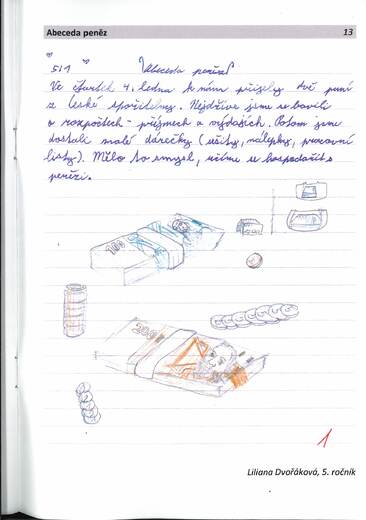 Abeceda peněz 13
51
Abeceda peněz
Ve čtvrtek 4. ledna k nám přijely dvě paní
z České spořitelny. Nejdříve jsme se bavili
o rozpočtech - příjmech a výdajích. Potom jsme
dostali malé dárečky (sešity, nálepky, pracovní
listy). Mělo to smysl, učíme se hospodařit s
penězi.
100
200
1
Liliana Dvořáková, 5. ročník